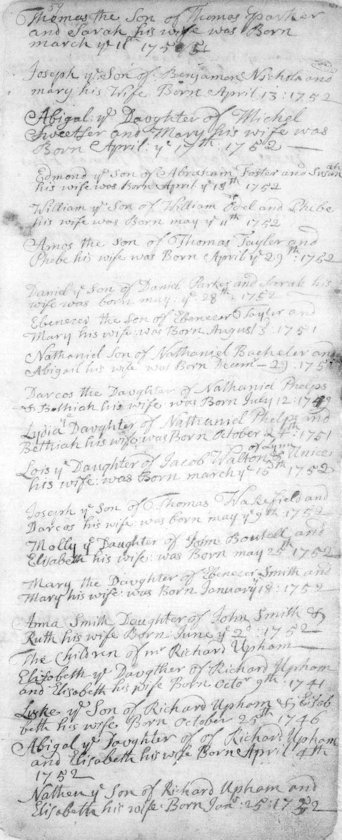 Thomas the Son of Thomas Parker
and Sarah his wife was Born
march ye 11th 1752
Joseph ye Son of Benjamon Nichols and
mary his wife Born April 13: 1752
Abigal ye Daughter of Michel
Sweetser and Mary his wife was
Born April ye 17th 1752
Edmond ye Son of Abraham Foster and Susan
his wife was Born April ye 18th 1752
William ye Son of William and Phebe
his wife was Born may ye 11th 1752
Amos the Son of Thomas Tayler and
Phebe his wife was Born April ye 29th 1752
Daniel ye Son of David Parker and Sarah his
wife was born may ye 28th 1752
Ebenezer the Son of Ebenezer Tayler and
Mary his wife was Born August 3 1751
Nathaniel Son of Nathaniel Bacheler and
Abigail his wife was Born Decem - 29: 175
Darcos the Daughter of Nathaniel Phelps
& Bethiah his wife was Born July 12 1749
Lydia ye Daughter of Nathaniel Phelps and
Bethiah his wife was Born October 1751
Lois ye Daughter of Jacob Walton & Eunice
his wife was Born march ye 15th 1752
Joseph ye Son of Thomas Wakefield and
Darcos his wife was Born may ye 9th 1752
Molly ye Daughter of John Boutell and
Elisabeth his wife was Born may 25th 1752
Mary the Daughter of Ebenezer Smith and
Mary his wife was Born January 18: 1752
Anna Smith Daughter of John Smith &
Ruth his wife Born June ye 2d: 1752
The Children of mr Richard Upham
Elizebeth ye Daugther of Richard Upham
and Elisebeth his wife Born Octor 9th 1741
Luke ye Son of Richard Upham & Elisob
beth his wife Born October 25th 1746
Abigal ye Daughter of of Richard Upham
and Elisabeth his wife Born April 4th
1752
Nathen ye Son of Richard Upham and
Elisabeth his wife Born Jan: 25: 1752